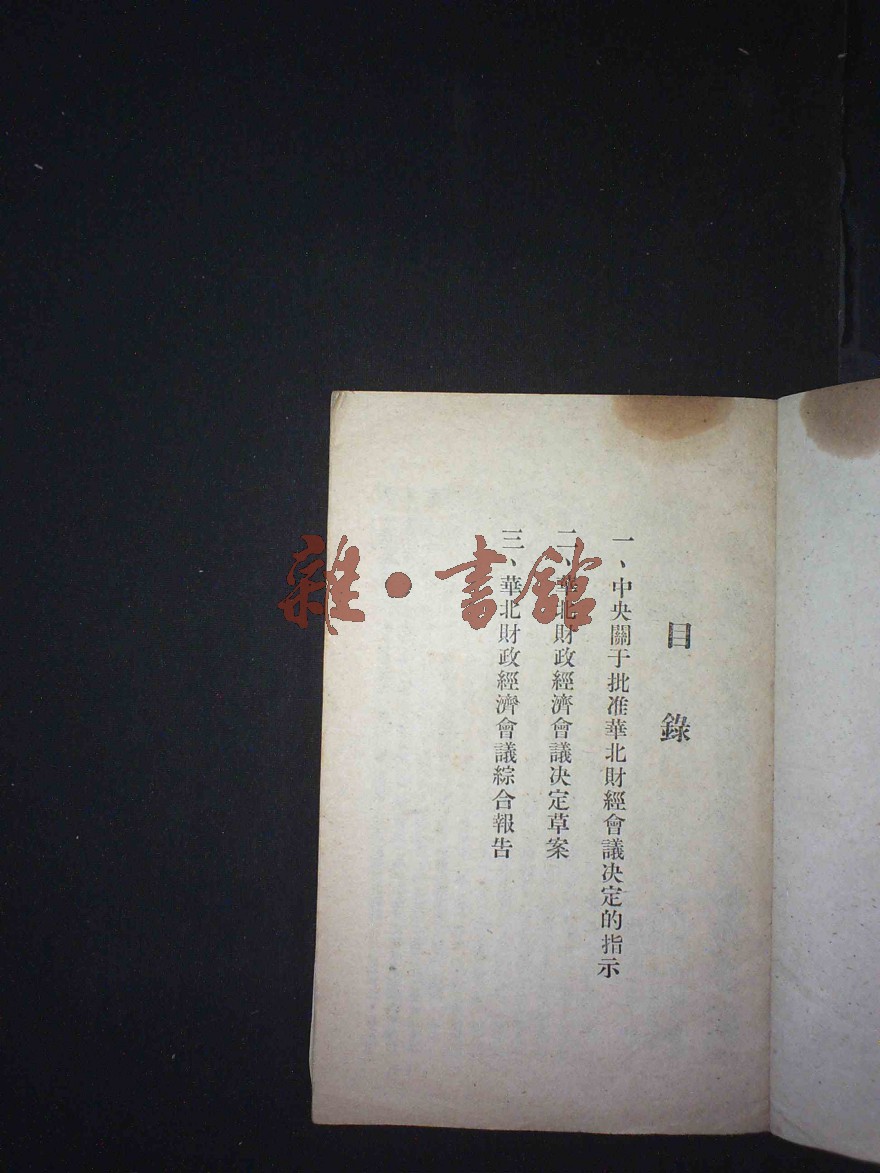 目錄
一、中央關于批准華北財經會議决定的指示
二、華北財政經濟會議决定草案
三、華北財政經濟會議綜合報告
雜·書館